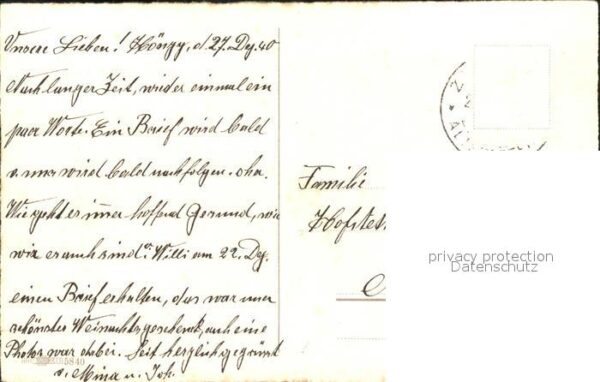 Unsere Lieben! Höngg, d. 27. Dez. 40
Nach langer Zeit, wieder einmal ein
paar Worte. Ein Brief wird bald
wird bald nachfolgen.
Wie geht es immer hoffend Gesund, wie
wir es auch sind. Willi am 22. Dez.
einen Brief erhalten, das war unser
schönstes Weinachtsgeschenk, auch eine
Photo war dabei. Seit herzlich gegrüsst
v. Mina u. Joh.
5840
Familie
Hofstet
privacy protection
Datenschutz